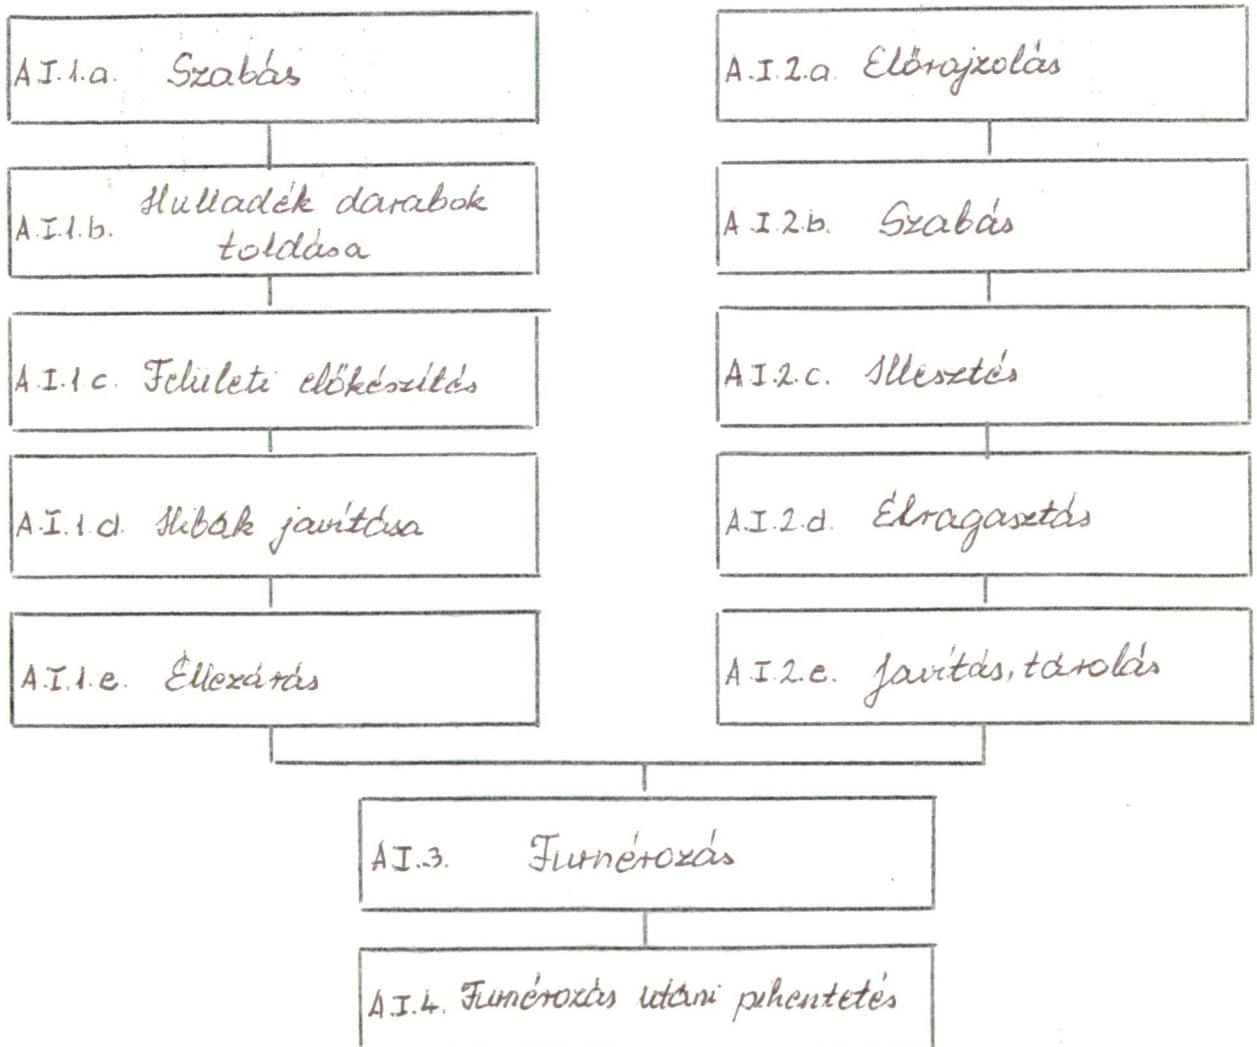 A.I.1.a. Szabás
A.I.1.b. Hulladék darabok
toldása
A.I.1.c. Felületi előkészítés
A.I.1.d. Hibák javítása
A.I.1.e. Éllezárás
A.I.2.a. Előrajzolás
A.I.2.b. Szabás
A.I.2.c. Illesztés
A.I.2.d. Élragasztás
A.I.2.e. Javítás, tárolás
A.I.3. Furnérozás
A.I.4. Furnérozás utáni pihentetés